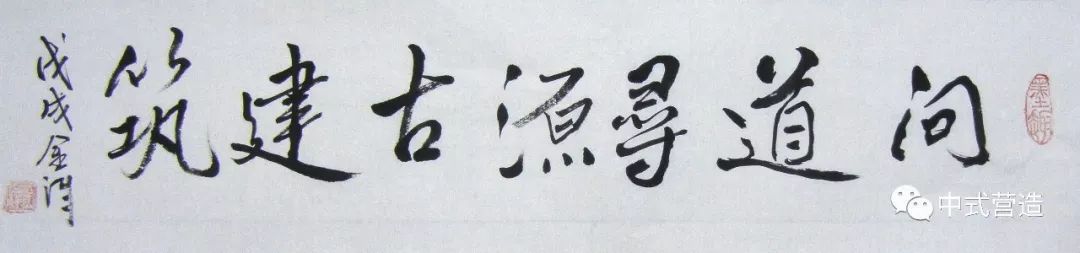 问道尋源古建筑
戊戌金润
中式营造